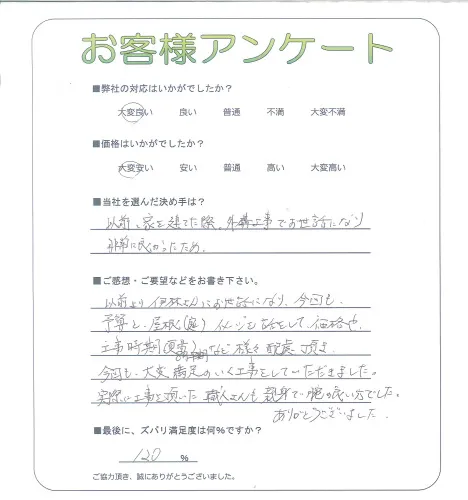 お客様アンケート
■弊社の対応はいかがでしたか？
大変良い 良い 普通 不満 大変不満
■価格はいかがでしたか？
大変安い 安い 普通 高い 大変高い
■当社を選んだ決め手は？
以前、家を建てた際、外構工事でお世話になり
非常に良かったため。
■ご感想・ご要望などをお書き下さい。
以前より伊林さんにお世話になり、今回も、
予算と、屋根(庭) イメージを話をして、価格や、
工事時期 など様々配慮頂き
今回も、大変満足のいく工事をしていただきました。
実際に工事を頂いた職人さんも親身で、腕の良い方でした。
ありがとうございました。
■最後に、ズバリ満足度は何％ですか？
120 %
ご協力頂き、誠にありがとうございました。